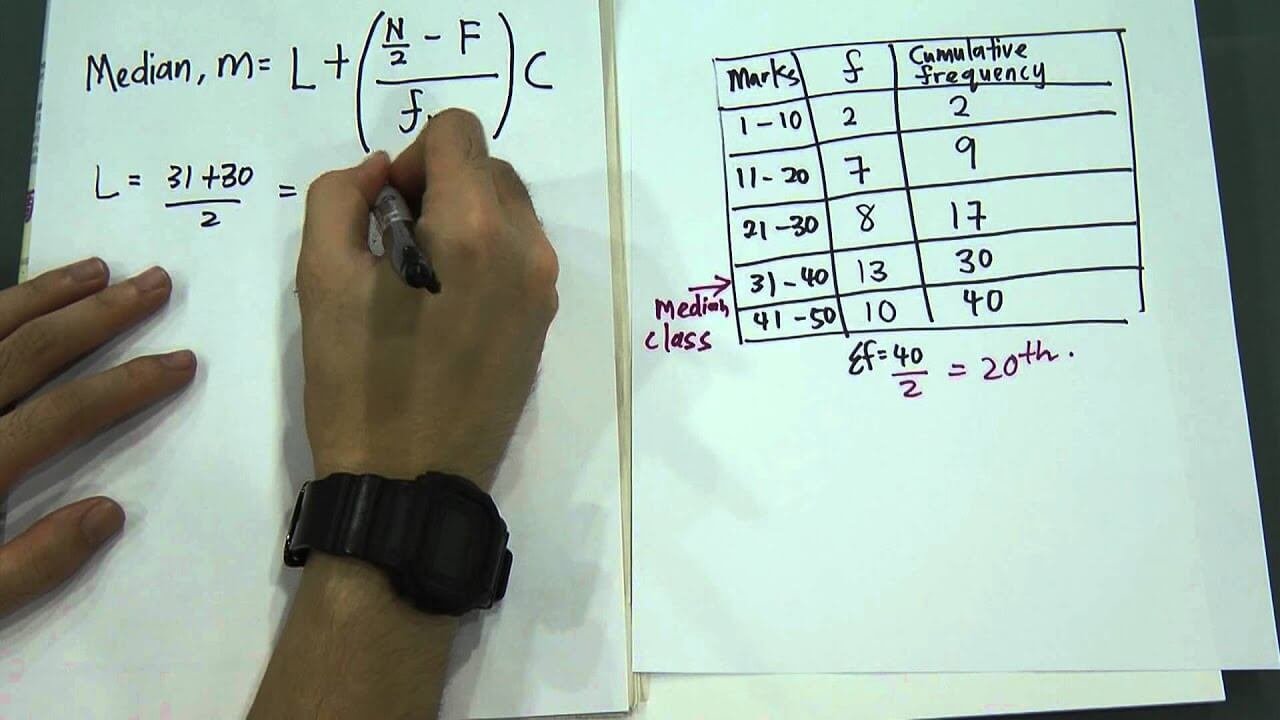 Median, m = L + ( (N/2 - F) / f ) C
L = (31+30)/2 =
Marks f Cumulative frequency
1-10 2 2
11-20 7 9
21-30 8 17
31-40 13 30
41-50 10 40
Median class
Σf = 40/2 = 20th.